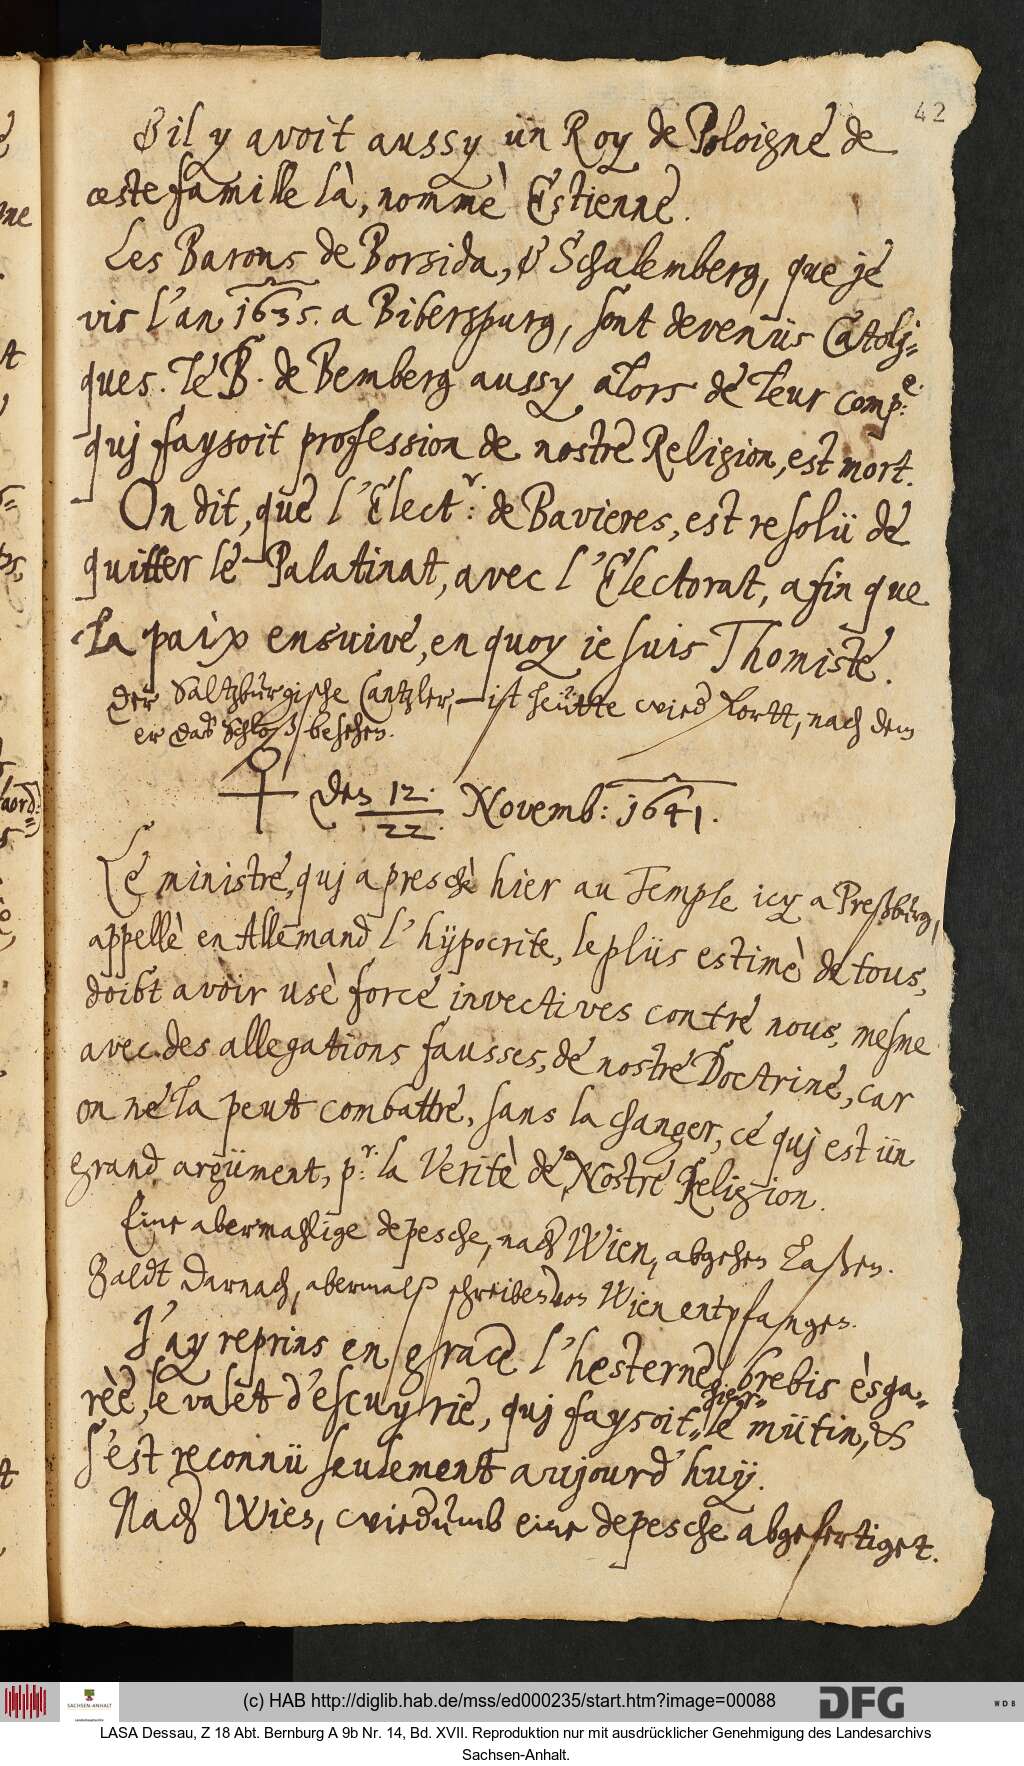 42
& il y avoit aussy un Roy de Poloigne de
ceste famille là, nommè Estienne.
Les Barons de Borsida, & Schalemberg, que je
vis l'an 1635. a Biberspurg, sont devenüs Catolj=
ques. Le B. de Bemberg aussy alors de leur comp:e.
quj faysoit profession de nostre Religion, est mort.
On dit, que l'Elect:r. de Bavieres, est resolü de
quitter le Palatinat, avec l'Electorat, afin que
la paix ensuive, en quoy je suis Thomiste.
Der Saltzburgische Cantzler, ist heütte wied fortt, nach dem
er daß Schloß besehen.
♀ den 12. / 22. Novemb: 1641.
Le ministre, quj a preschè hier au Temple icy a Preßburg,
appellè en Allemand l'hÿpocrite, le plüs estimè de tous,
doibt avoir usè force invectives contre nous, mesme
avec des allegations fausses, de nostre Doctrine, car
on ne la peut combattre, sans la changer, ce quj est ün
grand argüment, p:r la Veritè de Nostre Religion.
Eine abermahlige depesche, nach Wien, abgehen laßen.
Baldt darnach, abermalß schreiben von Wien entpfangen.
J'ay reprins en grace l'hesterne brebis èsga=
rèe, le valet d'escuyrie, quj faysoit hier le mütin, &
s'est reconnü seulement aujourd'huÿ.
Nach Wien, wiedumb eine depesche abgefertiget.
(c) HAB http://diglib.hab.de/mss/ed000235/start.htm?image=00088
SACHSEN-ANHALT
DFG
WDB
LASA Dessau, Z 18 Abt. Bernburg A 9b Nr. 14, Bd. XVII. Reproduktion nur mit ausdrücklicher Genehmigung des Landesarchivs
Sachsen-Anhalt.